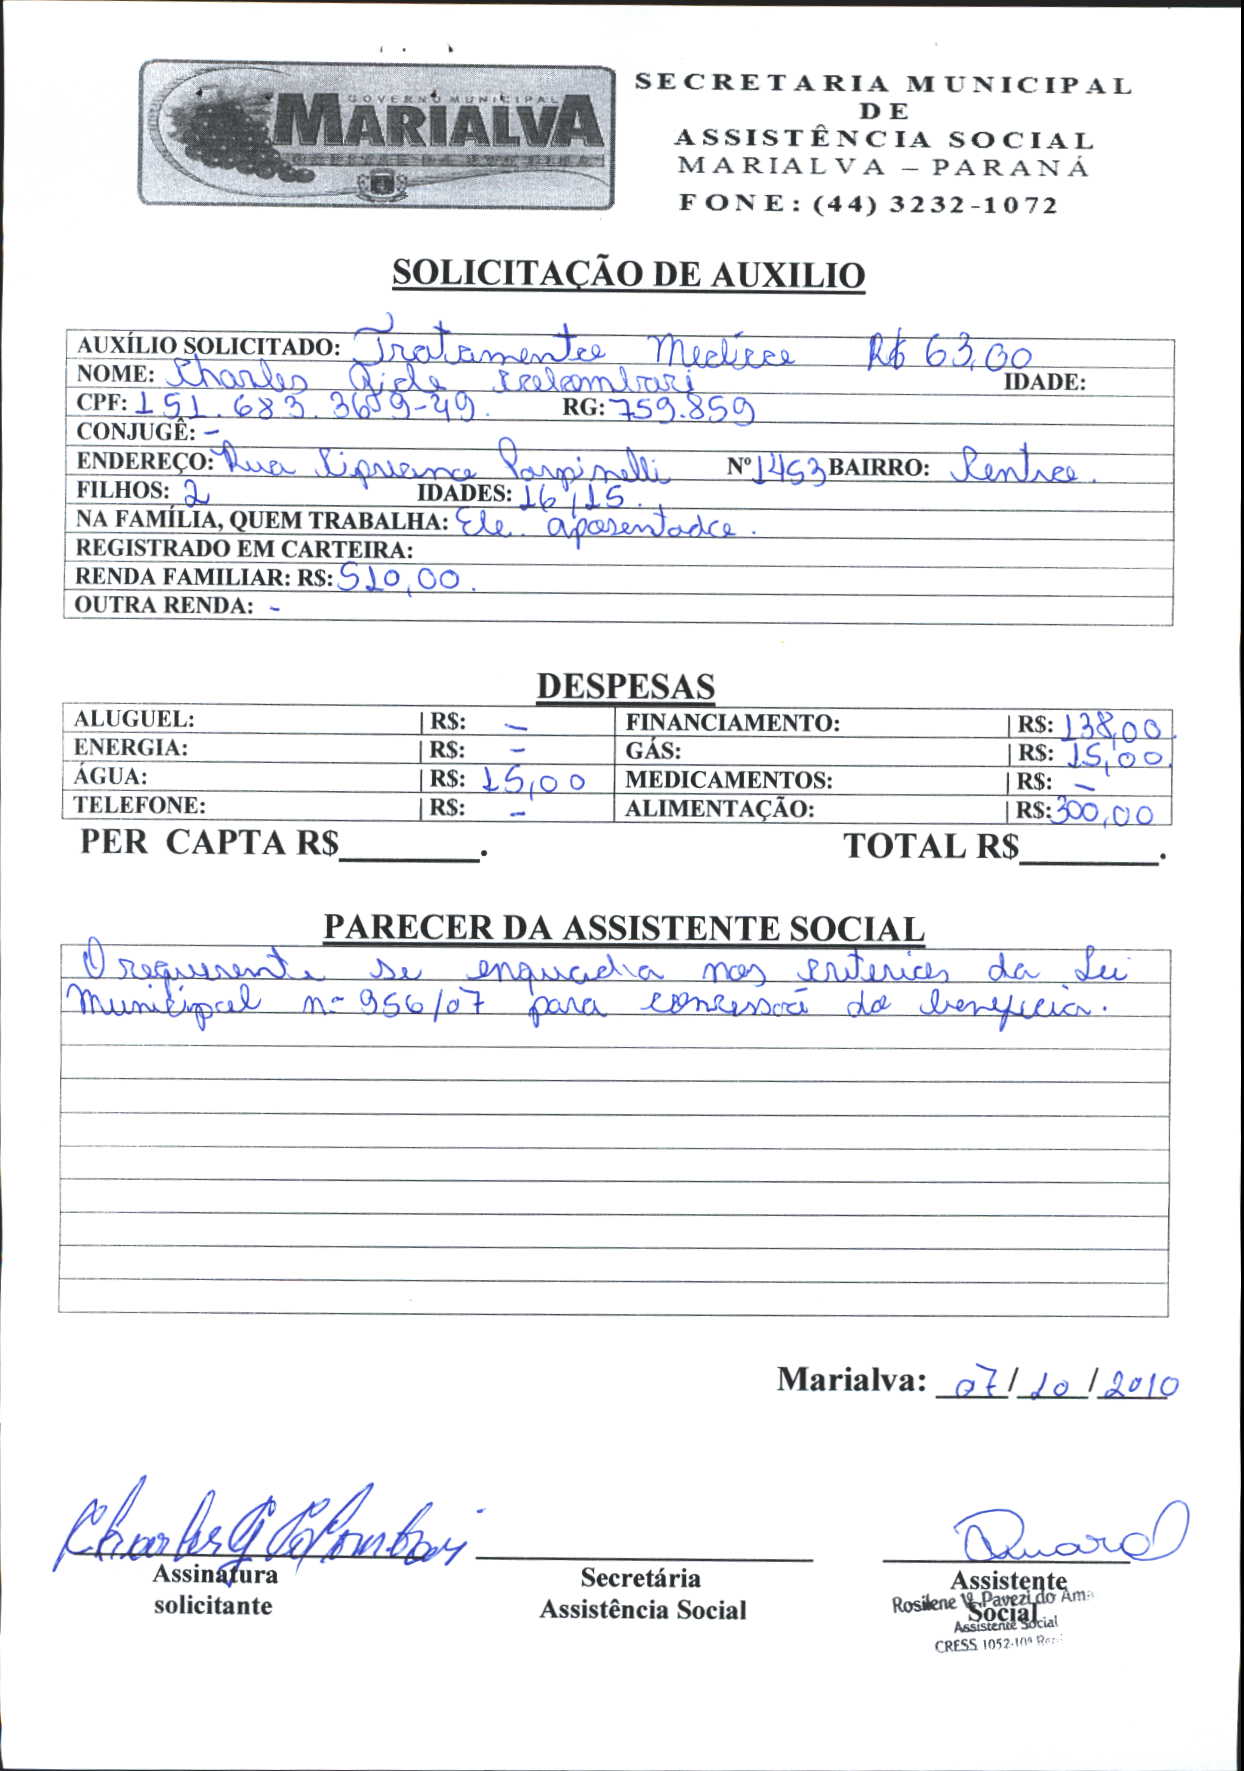 GOVERNO MUNICIPAL
MARIALVA
SECRETARIA MUNICIPAL
DE
ASSISTÊNCIA SOCIAL
MARIALVA – PARANÁ
FONE: (44) 3232-1072
SOLICITAÇÃO DE AUXILIO
AUXÍLIO SOLICITADO: Tratamento Médico R$ 63,00
NOME: Charles Colombari IDADE:
CPF: 151.683.369-49. RG: 759.859
CONJUGÊ: -
ENDEREÇO: Rua Cipriano Parpinelli Nº 1453 BAIRRO: Centro.
FILHOS: 2 IDADES: 16, 15.
NA FAMÍLIA, QUEM TRABALHA: Ele aposentado.
REGISTRADO EM CARTEIRA:
RENDA FAMILIAR: R$: 510,00.
OUTRA RENDA: -
DESPESAS
ALUGUEL: | R$: - FINANCIAMENTO: | R$: 138,00.
ENERGIA: | R$: - GÁS: | R$: 15,00.
ÁGUA: | R$: 15,00 MEDICAMENTOS: | R$: -
TELEFONE: | R$: - ALIMENTAÇÃO: | R$: 300,00
PER CAPTA R$________. TOTAL R$________.
PARECER DA ASSISTENTE SOCIAL
O requerente se enquadra nos criterios da Lei
Municipal nº 956/07 para concessão do beneficio.
Marialva: 07/10/2010
Charles G Colombari
Assinatura Secretária Assistente
solicitante Assistência Social Social
Rosilene V. Pavezi do Ama
Assistente Social
CRESS 1052-10ª